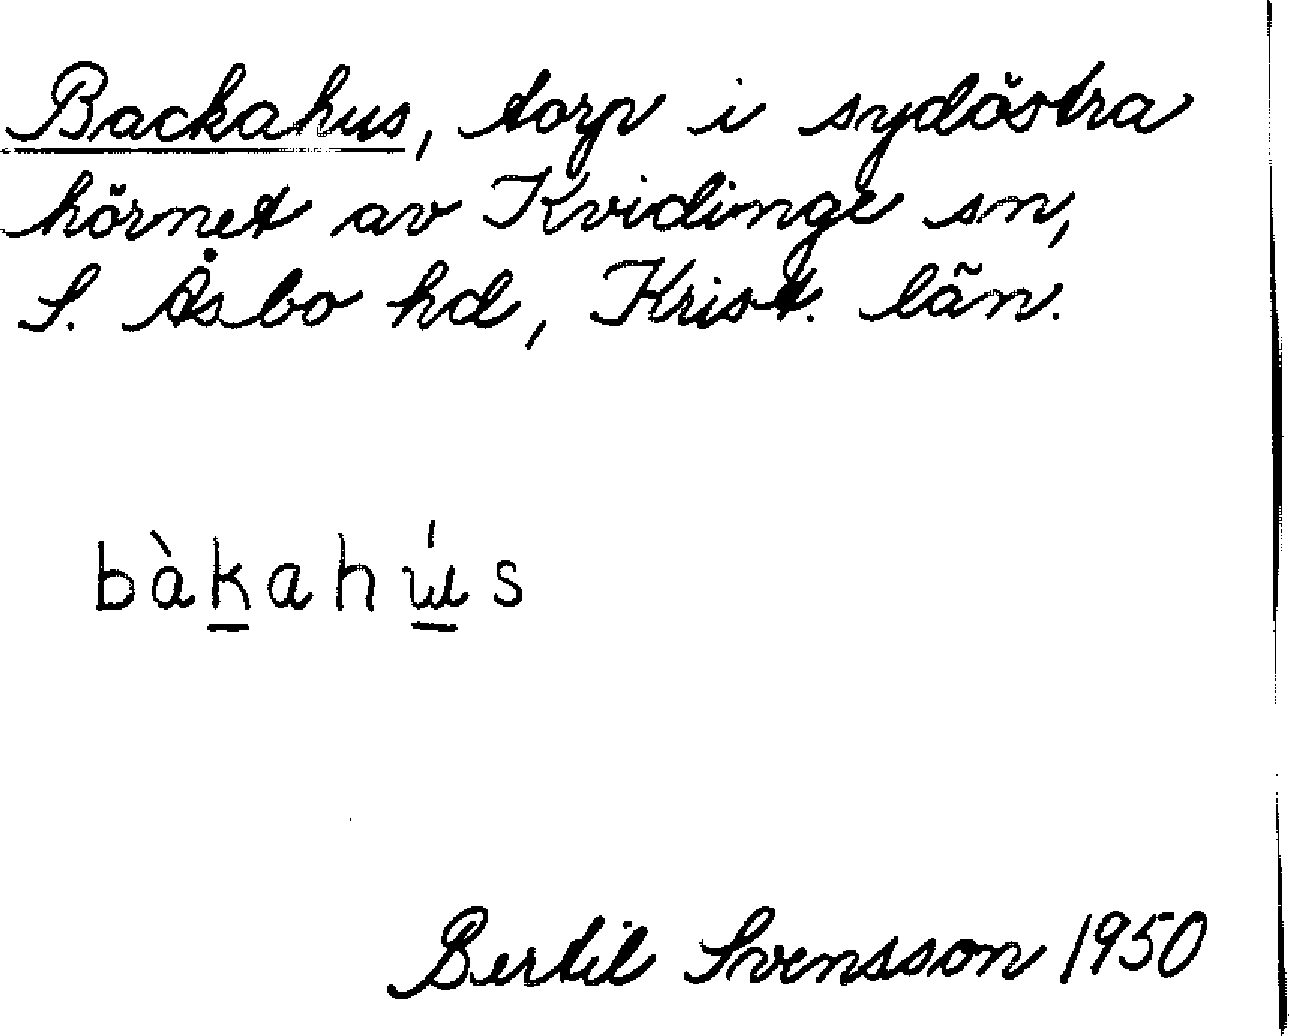 Backahus, torp i sydöstra
hörnet av Kvidinge sn,
S. Åsbo hd, Krist. län.
bàk̲ahɯ̲́s
Bertil Svensson 1950